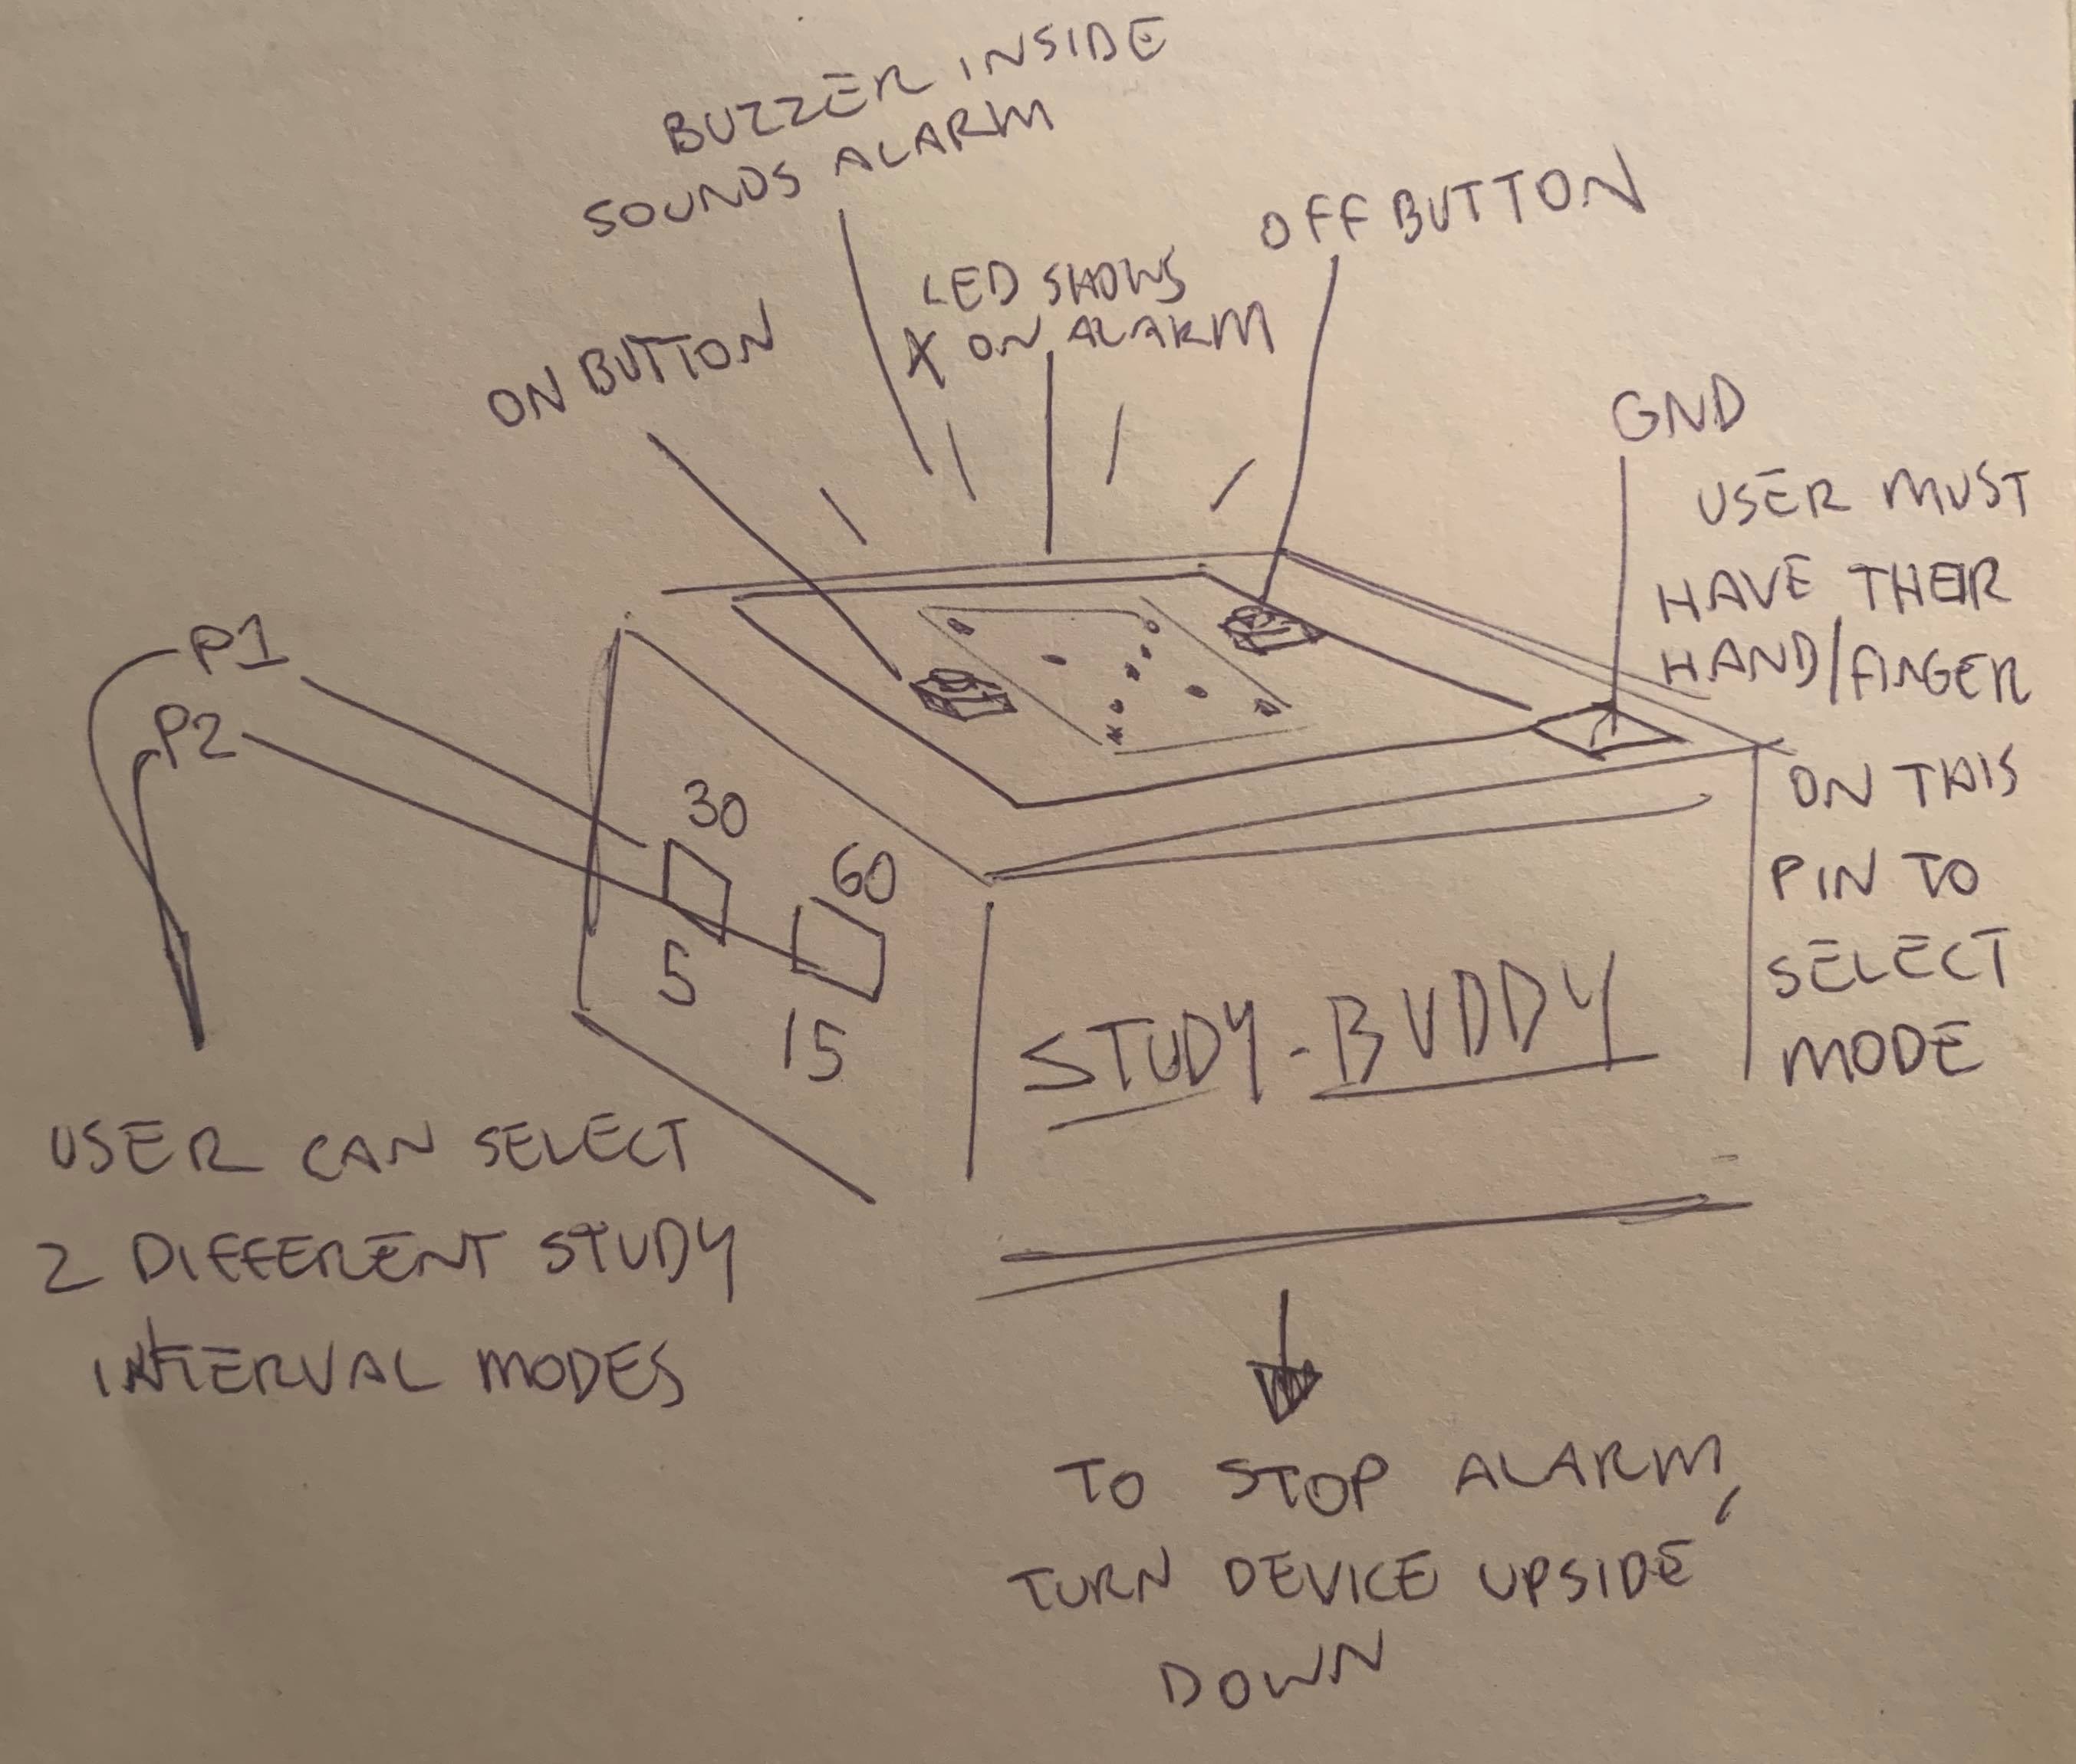 BUZZER INSIDE
SOUNDS ALARM
OFF BUTTON
LED SHOWS
X ON ALARM
ON BUTTON
GND
USER MUST
HAVE THEIR
HAND/FINGER
ON THIS
PIN TO
SELECT
MODE
P1
P2
30
60
5
15
STUDY-BUDDY
USER CAN SELECT
2 DIFFERENT STUDY
INTERVAL MODES
TO STOP ALARM,
TURN DEVICE UPSIDE
DOWN